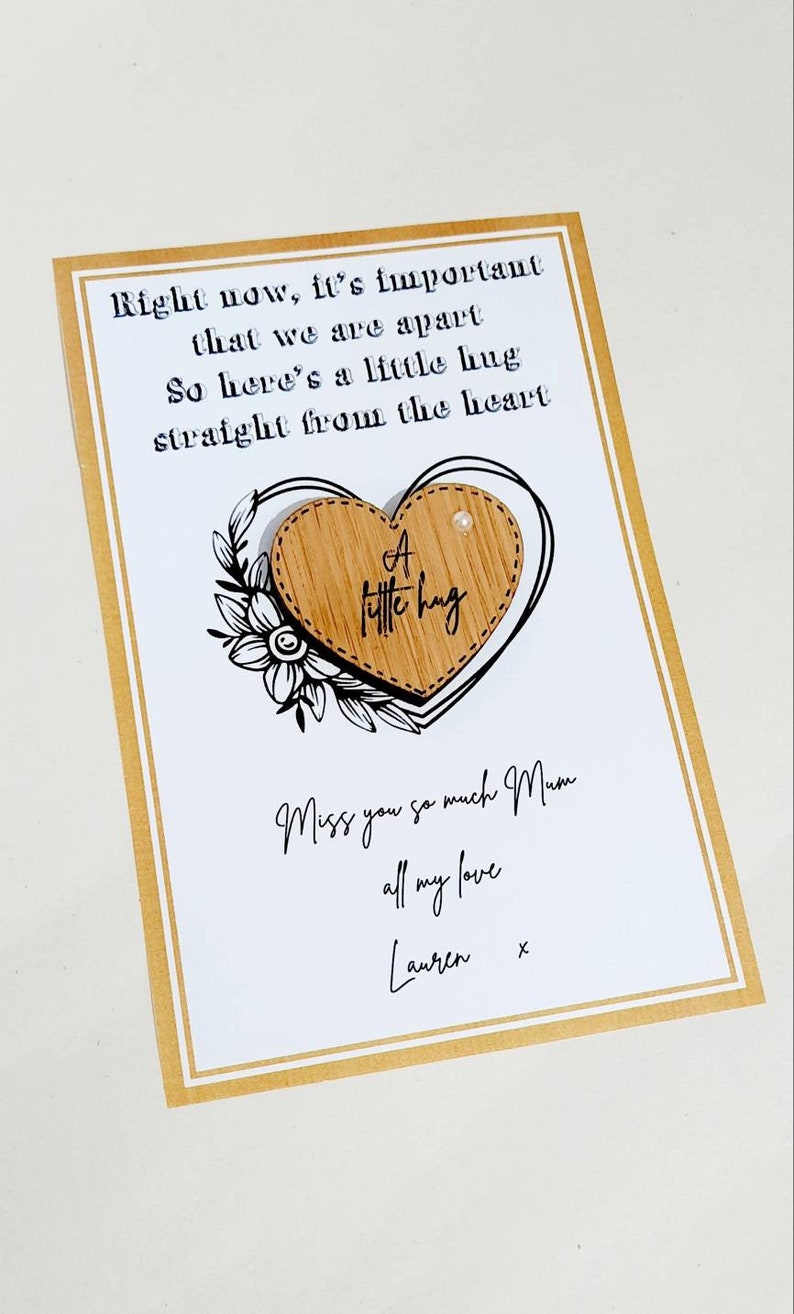 Right now, it's important
that we are apart
So here's a little hug
straight from the heart
A
little hug
Miss you so much Mum
all my love
Lauren x